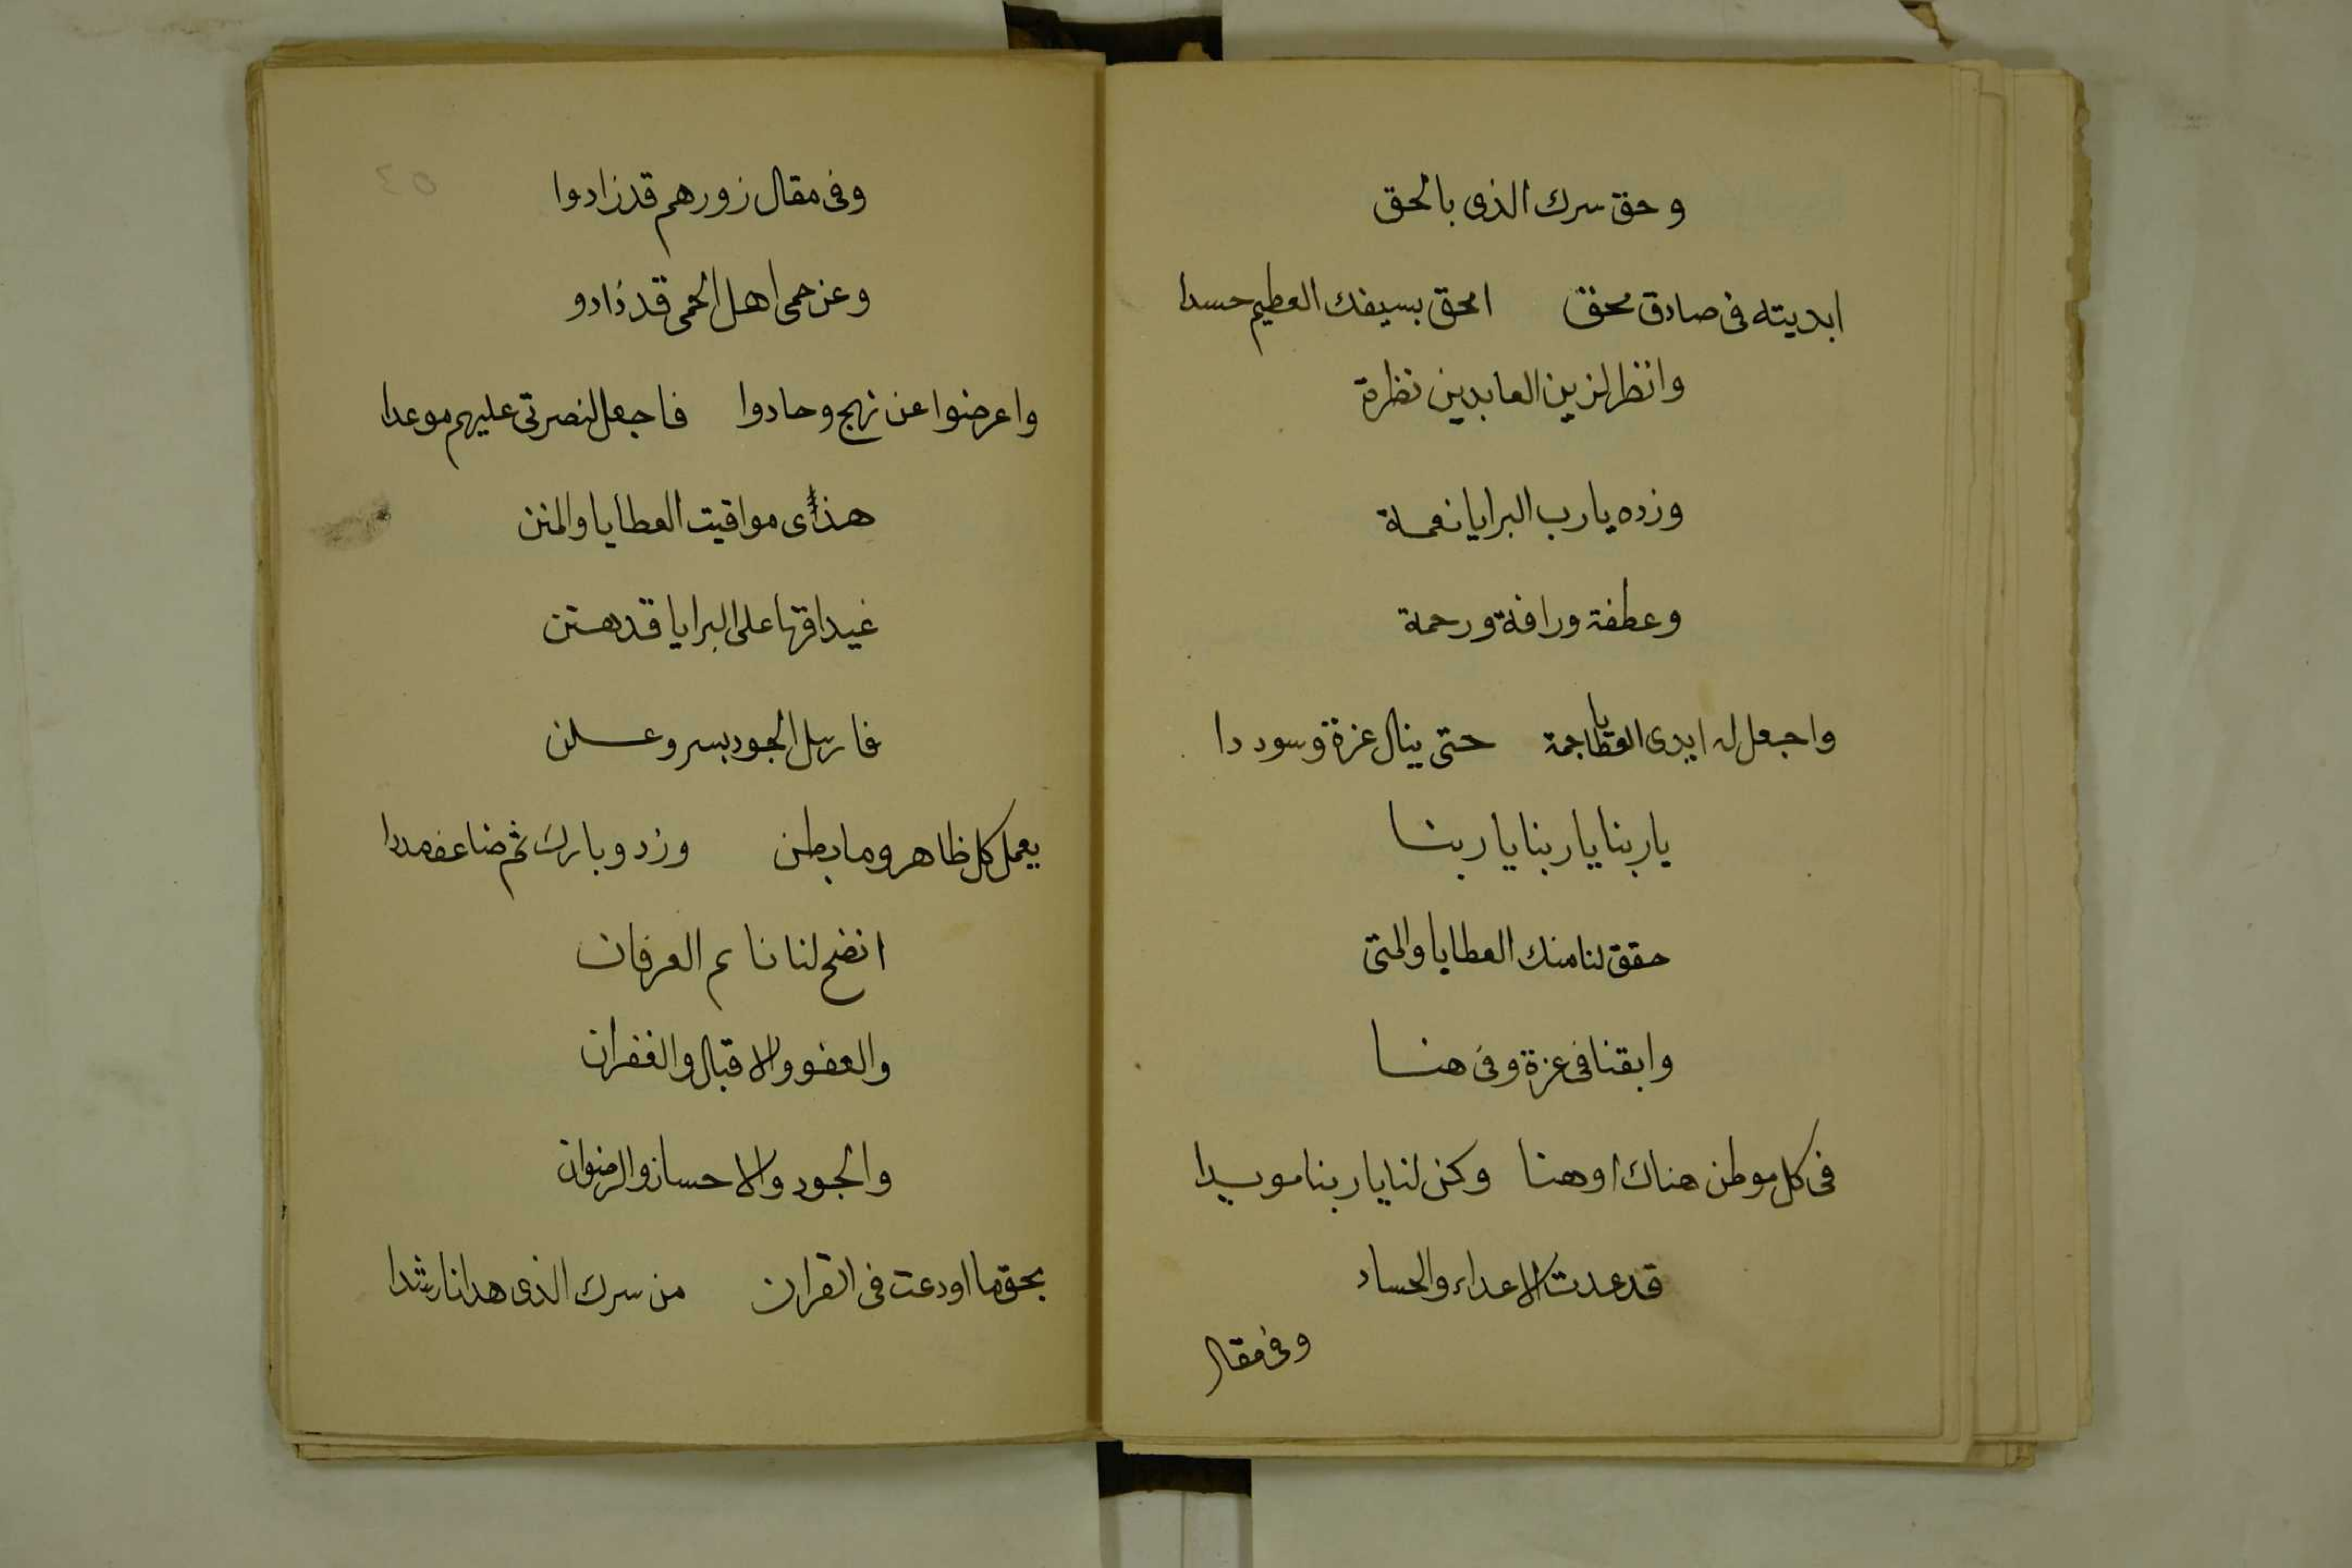 وحق سرك الذى بالحق
ابديته فى صادق محقق امحق بسيفك العظيم حسدا
وانظر لزين العابدين نظرة
وزده يارب البرايا نعمة
وعطفة ورافة ورحمة
واجعل له ايدى العطايا جمة حتى ينال عزة وسوددا
ياربنا ياربنا ياربنا
حقق لنا منك العطايا والمنى
وابقنا فى عزة وفى هنا
فى كل موطن هناك او هنا وكن لنا ياربنا مويدا
قد عدت الاعداء والحساد
وفى مقال
٤٥
وفى مقال زورهم قد زادوا
وعن حمى اهل الحمى قد ذادو
واعرضوا عن نهج وحادوا فاجعل لنصرتى عليهم موعدا
هذى مواقيت العطايا والمنن
غيداقها على البرايا قد هتن
فارسل الجود بسر وعلن
يعمل كل ظاهر وما بطن وزد وبارك ثم ضاعف مددا
انضح لنا العرفان
والعفو والاقبال والغفران
والجود والاحسان والرضوان
بحق ما اودعت فى القران من سرك الذى هدانا رشدا